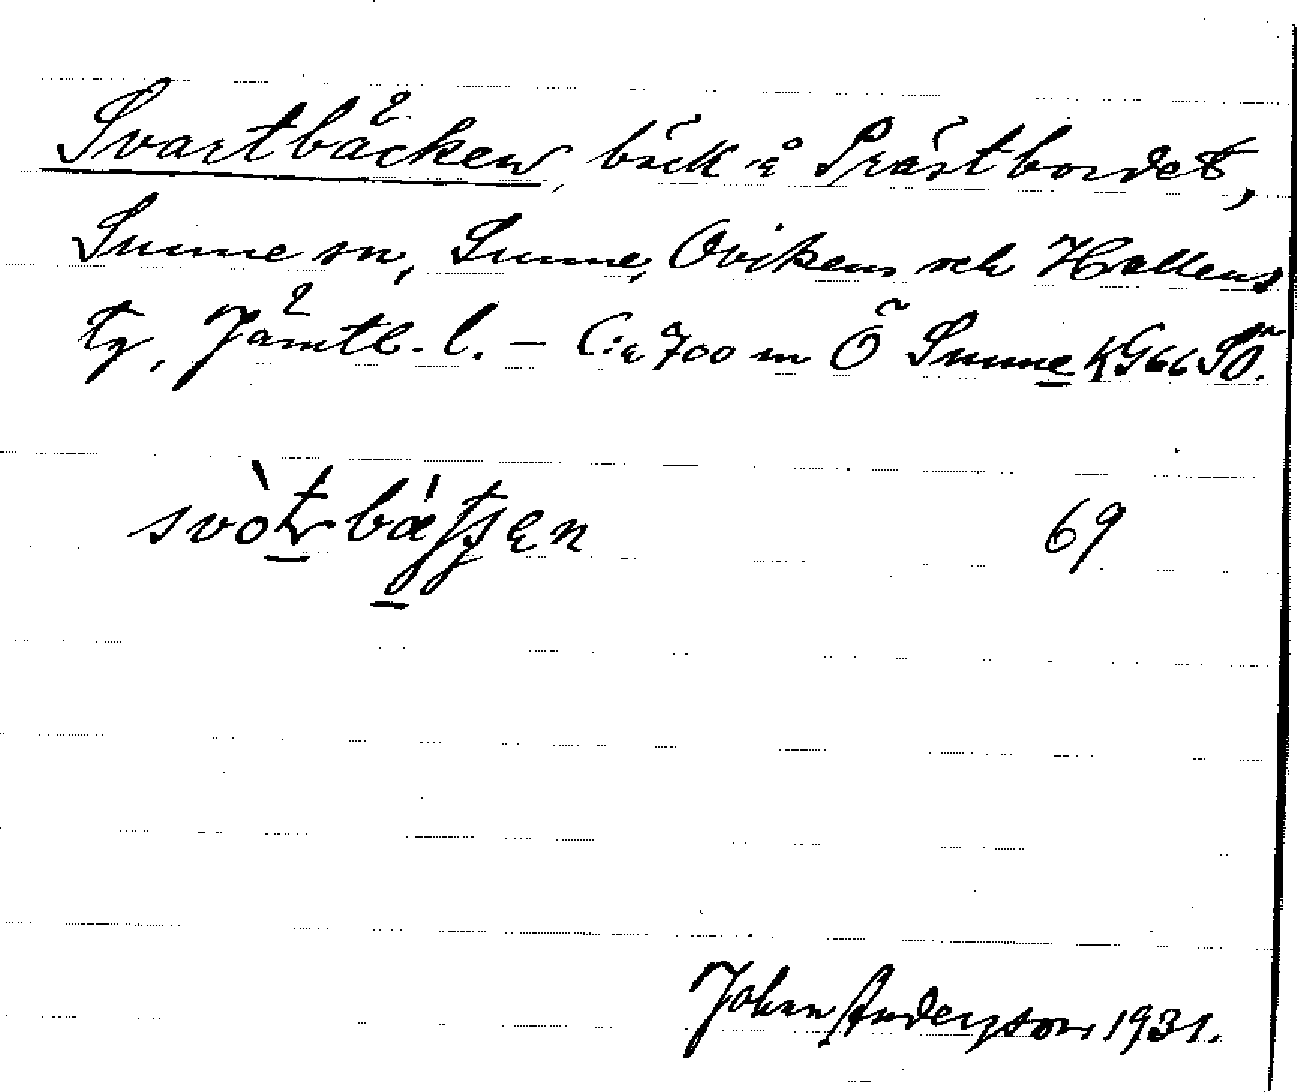 Svartbäcken, bäck å Prästbordet,
Sunne sn, Sunne, Ovikens och Hallens
tg, Jämtl. l. – C:a 700 m Ö Sunne K G66 SÖ.
svòt bæ̀tʃen 69
Johan Anderson 1931.